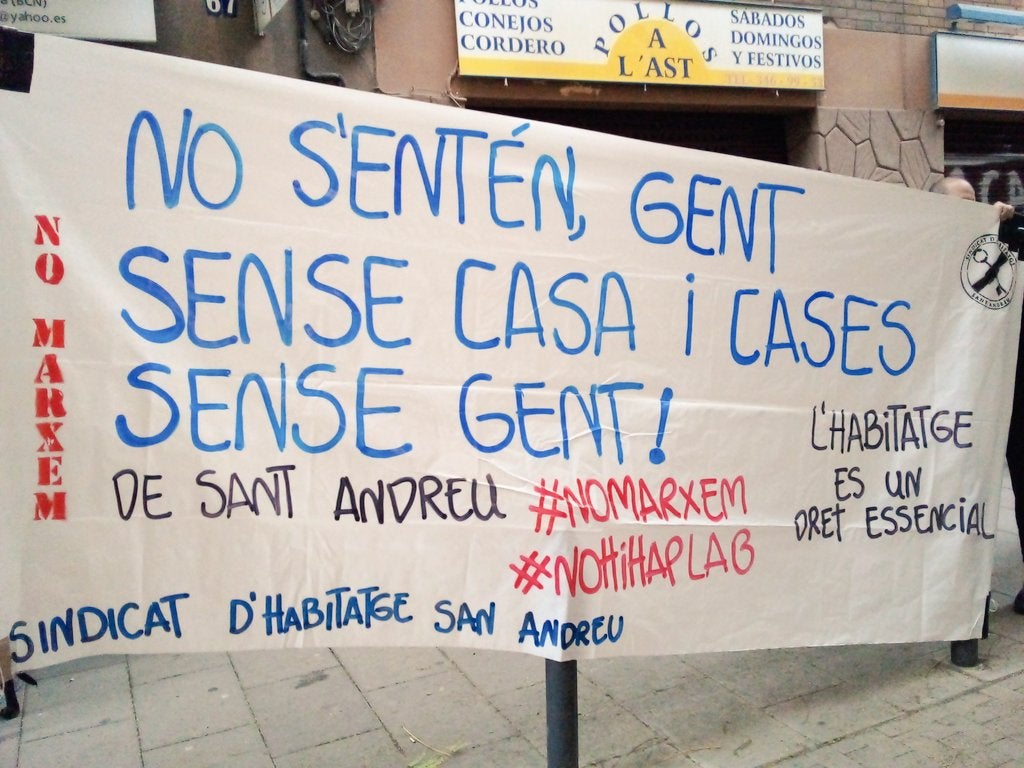 @yahoo.es
67
POLLOS
CONEJOS
CORDERO
POLLOS
A
L'AST
SÁBADOS
DOMINGOS
Y FESTIVOS
NO S'ENTÉN, GENT
SENSE CASA i CASES
SENSE GENT!
NO MARXEM
DE SANT ANDREU
#NOMARXEM
#NOHIHAPLAB
L'HABITATGE
ES UN
DRET ESSENCIAL
SINDICAT D'HABITATGE SAN ANDREU